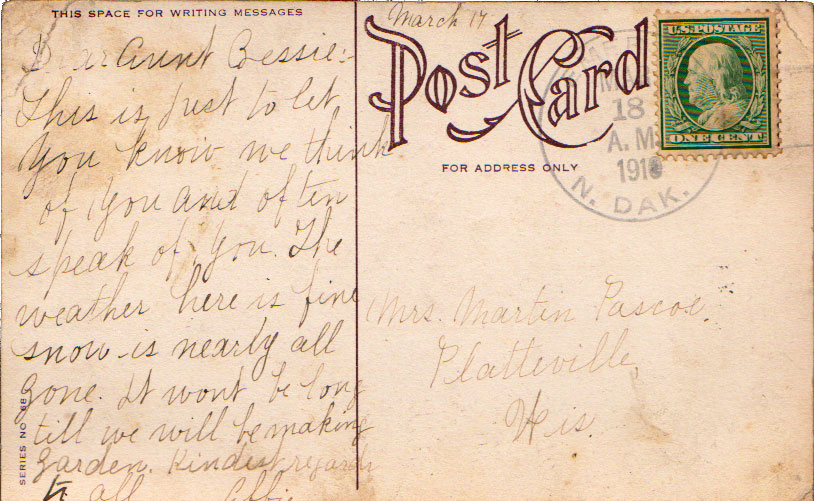 THIS SPACE FOR WRITING MESSAGES
Dear Aunt Bessie:-
This is just to let
you know we think
of you and often
speak of you. The
weather here is fine
snow is nearly all
gone. It wont be long
till we will be making
garden. Kindest regards
to all Effie
SERIES NO
March 17
Post Card
FOR ADDRESS ONLY
18
A. M.
1910
N. DAK.
U.S. POSTAGE
ONE CENT
Mrs. Martin Pascoe.
Platteville
Wis.